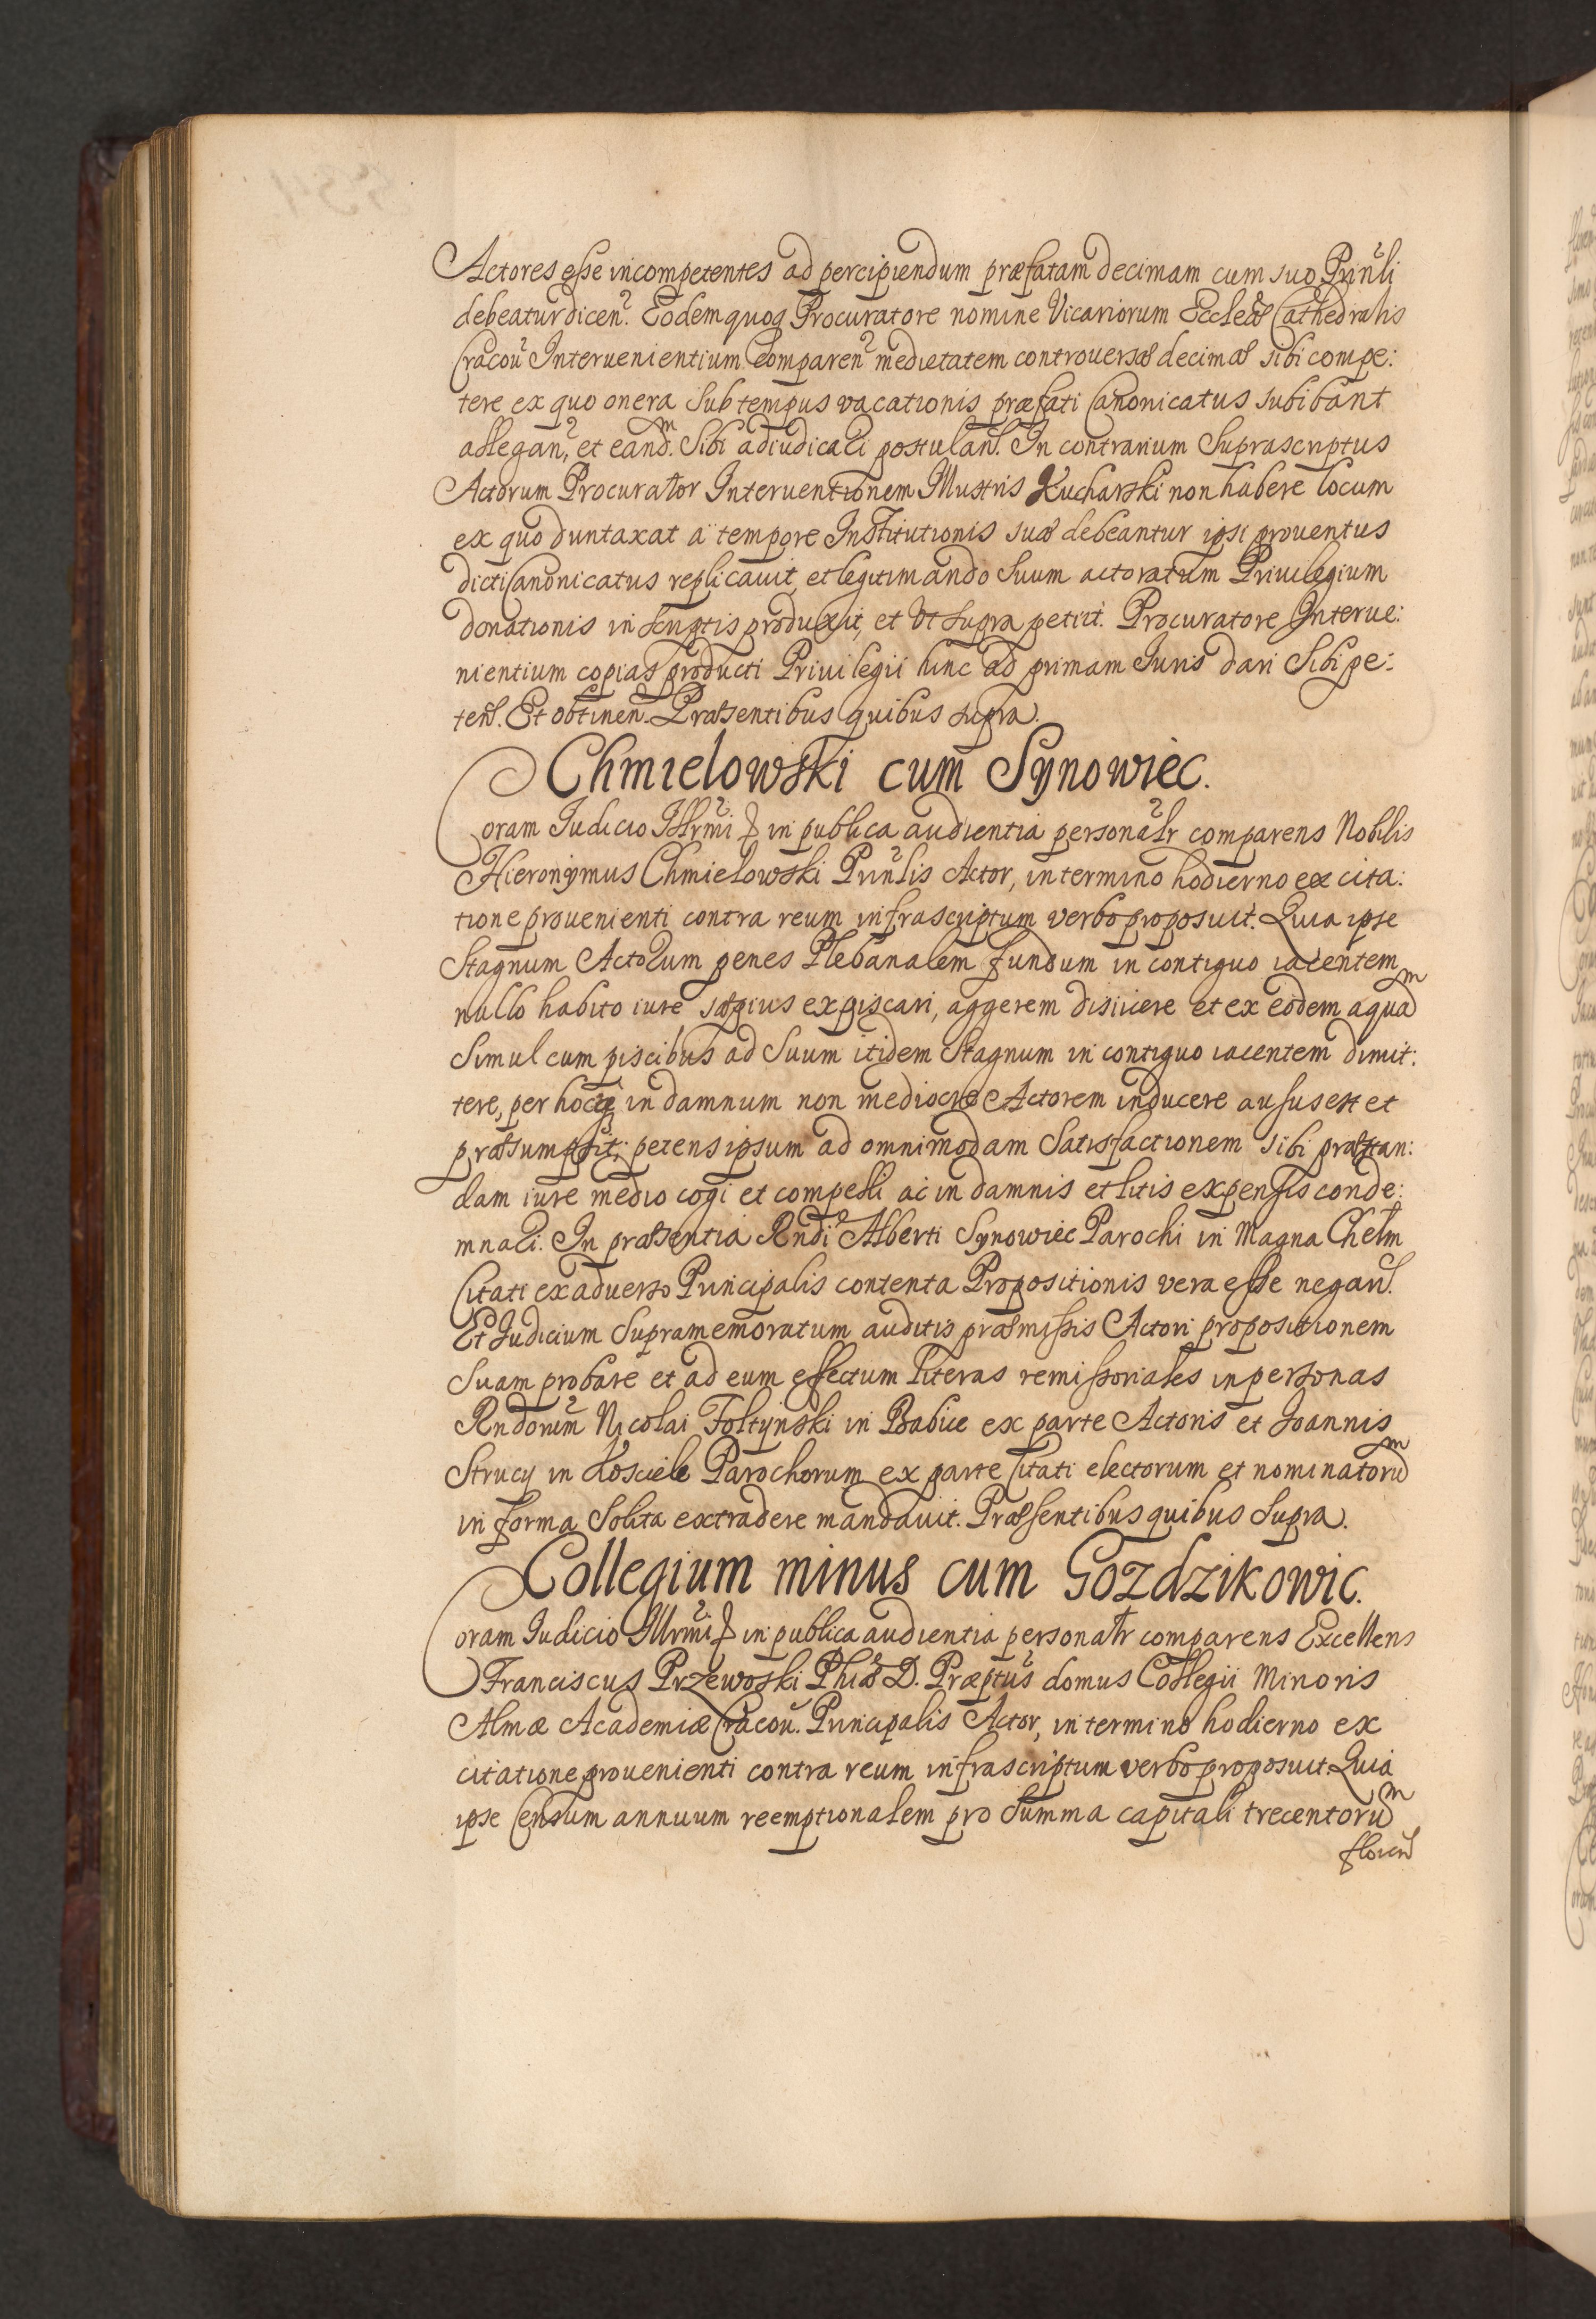 Actores esse incompetentes ad percipiendum præfatam decimam cum suo Prinłi
debeatur dicen. Eodemquoq Procuratore nomine Vicariorum Ecclesiæ Cathedralis
Cracou Interuenientium Comparen medietatem controuersæ decimæ sibi compe:
tere ex quo onera Sub tempus vacationis præfati Canonicatus subibant
allegan, et eandm. Sibi adiudicari postulan. In contrarium Suprascriptus
Actorum Procurator Interuentionem Illustris Kucharski non habere locum
ex quo duntaxat a tempore Institutionis suæ debeantur ipsi prouentus
dicti Canonicatus replicauit, et legitimando Suum actoratum Priuilegium
donationis in scriptis produxit, et Vt supra petiit. Procuratore Interue:
nientium copias producti Priuilegii hinc ad primam Juris dari Sibi pe:
ten. Et obtinen. Præsentibus quibus supra.
Chmielowski cum Synowiec.
Coram Judicio Illrmi in publica audientia personalr comparens Nobilis
Hieronymus Chmielowski Prinlis Actor, in termino hodierno ex cita:
tione prouenienti contra reum infrascriptum verbo proposuit. Quia ipse
Stagnum Actorum penes Plebanalem fundum in contiguo iacentem
nullo habito iure sæpius expiscari, aggerem disiicere et ex eodem aquam
Simul cum piscibus ad Suum itidem Stagnum in contiguo iacentem dimit:
tere, per hocq in damnum non mediocre Actorem inducere ausus est et
præsumpsit; petens ipsum ad omnimodam Satisfactionem sibi præstan:
dam iure medio cogi et compelli ac in damnis et litis expensis conde:
mnari. In præsentia Rndi Alberti Synowiec Parochi in Magna Chełm
Citati ex aduerso Principalis contenta Propositionis vera esse negan.
Et Judicium Supramemoratum auditis præmissis Actori propositionem
Suam probare et ad eum effectum literas remissoriales in personas
Rndorum Nicolai Foltynski in Babice ex parte Actoris et Joannis
Strucy in Kosciele Parochorum ex parte Citati electorum et nominatorum
in forma Solita extradere mandauit. Præsentibus quibus Supra.
Collegium minus cum Gozdzikowic.
Coram Judicio Illrmi in publica audientia personalr comparens Excellens
Franciscus Przewoski Phiæ D. Præptus domus Collegii Minoris
Almæ Academiæ Cracou. Principalis Actor, in termino hodierno ex
citatione prouenienti contra reum infrascriptum verbo proposuit. Quia
ipse Censum annuum reemptionalem pro Summa capitali trecentorum
floren